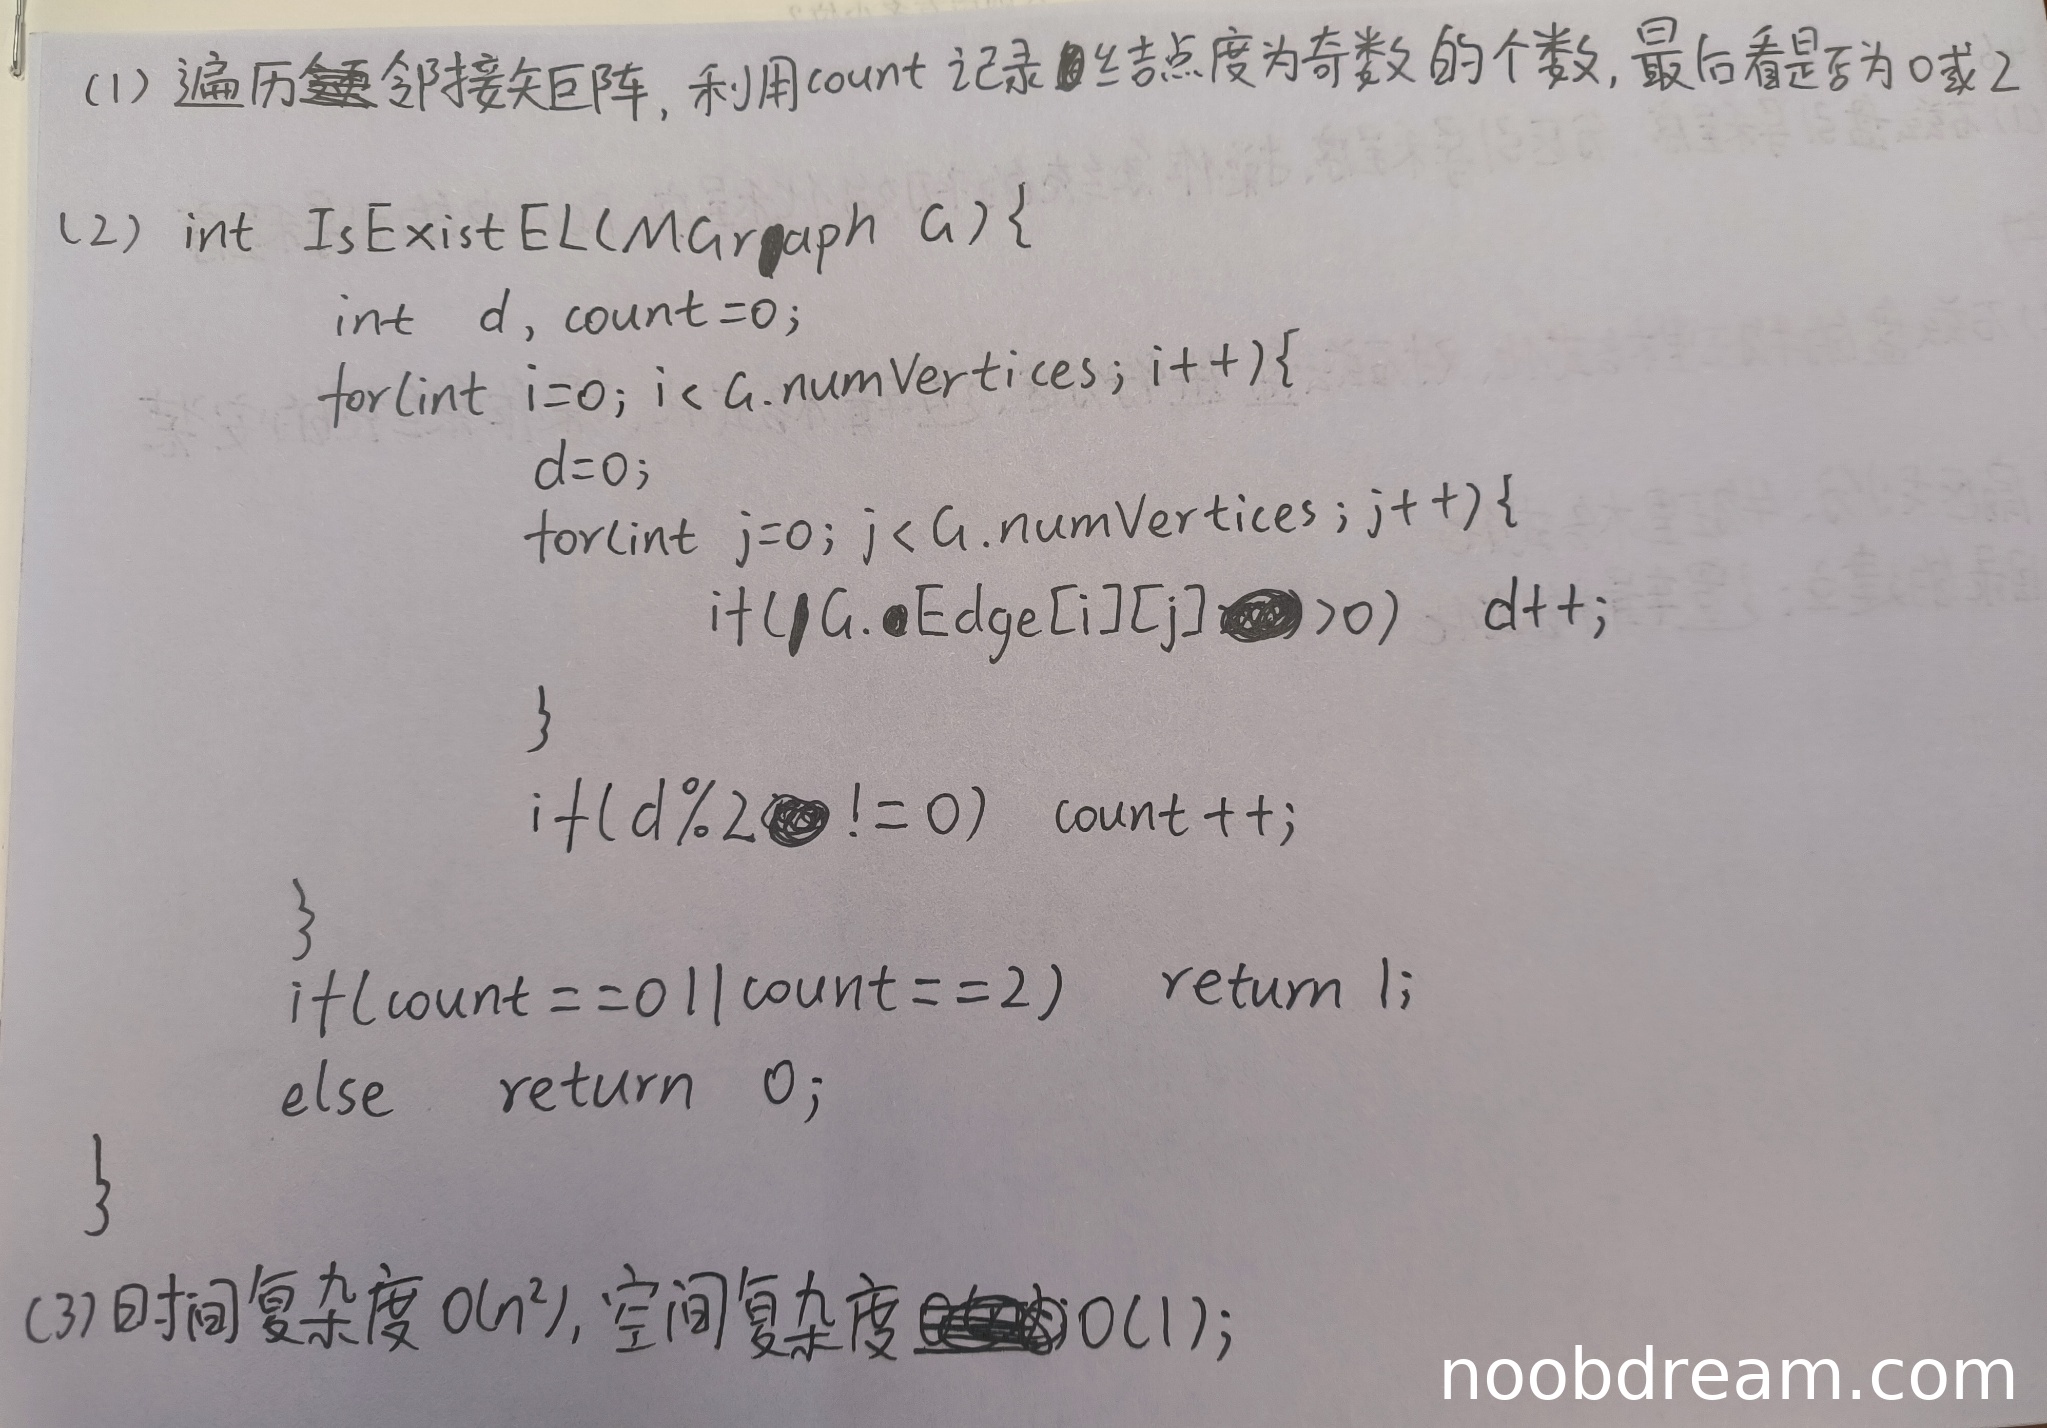 (1) 遍历邻接矩阵, 利用count 记录结点度为奇数的个数, 最后看是否为0或2
(2) int IsExistEL(MGraph G){
int d, count=0;
for(int i=0; i<G.numVertices; i++){
d=0;
for(int j=0; j<G.numVertices; j++){
if(G.Edge[i][j]>0) d++;
}
if(d%2!=0) count++;
}
if(count==0||count==2) return 1;
else return 0;
}
(3) 时间复杂度O(n²), 空间复杂度O(1);
noobdream.com